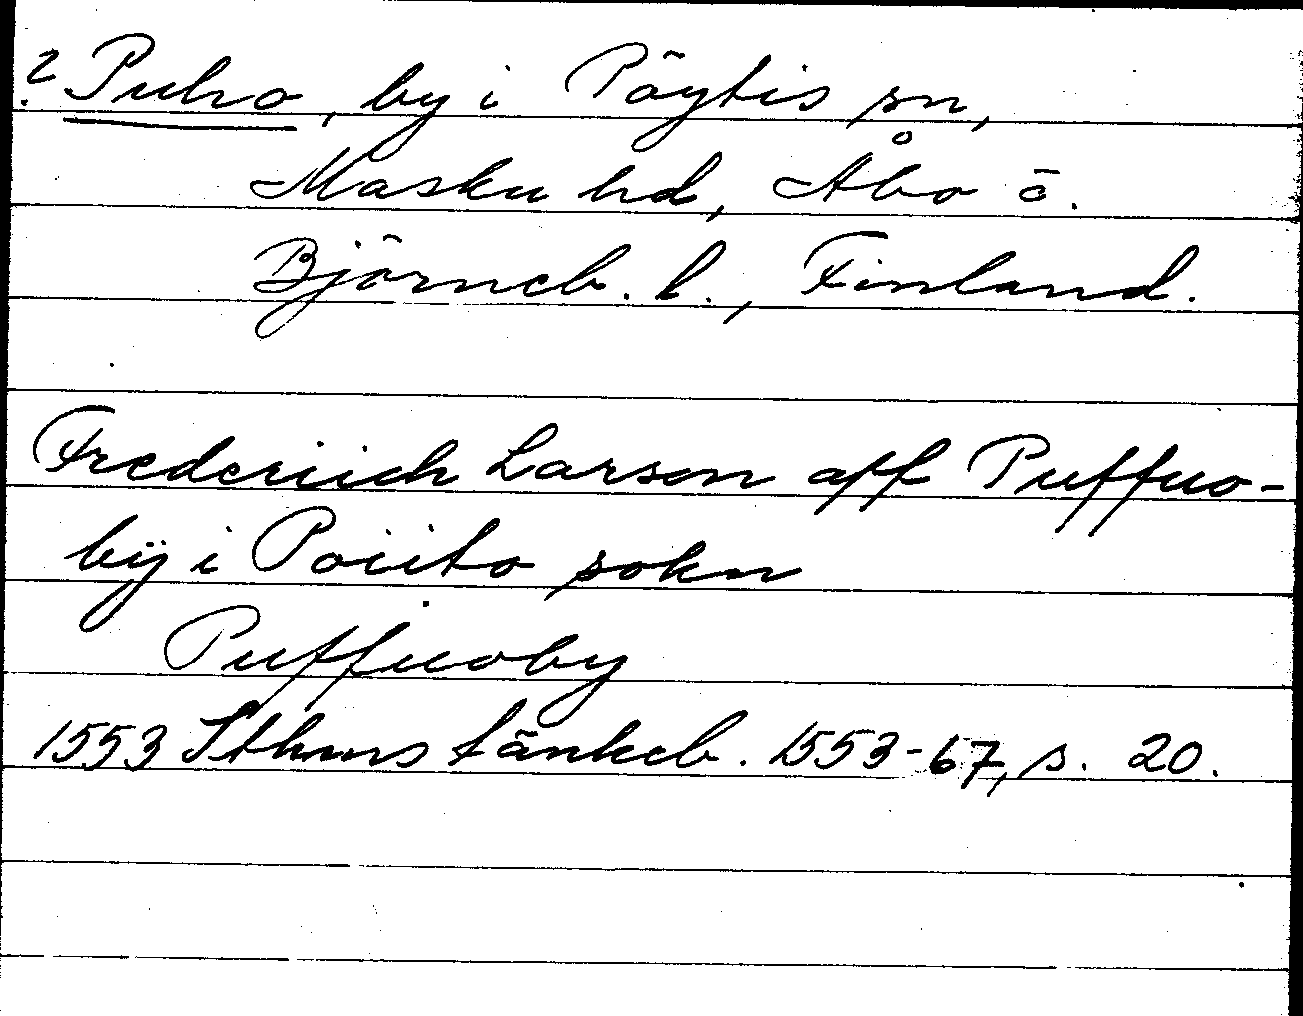 ? Puho, by i Pöytis sn,
Masku hd, Åbo o.
Björneb. l., Finland.
Frederiich Larson aff Puffuo-
bÿ i Poiito sokn
Puffuoby
1553 Sthms tänkeb. 1553-67, s. 20.